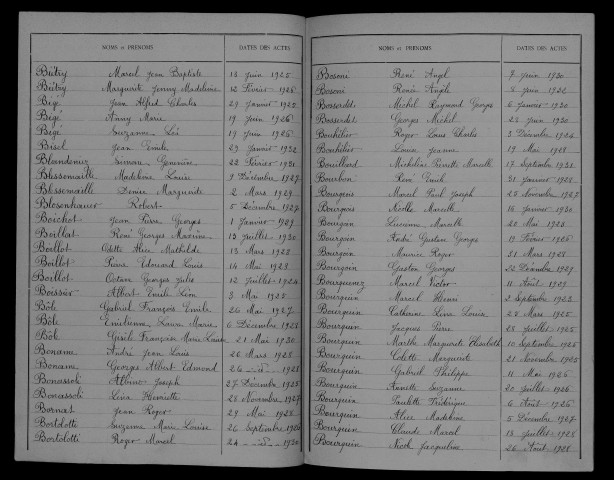 NOMS et PRÉNOMS DATES DES ACTES
Bétry Marcel Jean Baptiste 18 Juin 1925
Bétry Marguerite Jenny Madeleine 12 Février 1926
Bégé Jean Alfred Charles 29 Janvier 1925
Bégé Anny Marie 19 Juin 1926
Bégé Suzanne 19 Juin 1926
Bisel Jean Emile 29 Janvier 1932
Blandenier Simone Geneviève 22 Février 1931
Blessemaille Madeleine Louise 9 Décembre 1927
Blessemaille Denise Marguerite 2 Mars 1929
Blosenhauer Robert 5 Décembre 1927
Boichot Jean Pierre Georges 1 Janvier 1929
Boillat René Georges Maxime 13 Juillet 1930
Boillot Odette Alice Mathilde 13 Mars 1928
Boillot Pierre Edouard Louis 14 Mai 1923
Boillot Octave Georges Jules 12 Juillet 1924
Boissier Albert Emile Léon 3 Mai 1922
Bôle Gabriel François Emile 26 Mai 1927
Bôle Emilienne Laure Marie 6 Décembre 1928
Bôle Gisèle Françoise Marie Louise 21 Mai 1930
Boname André Jean Louis 26 Mars 1928
Boname Georges Albert Edmond 26 -d°- 1928
Bonassoli Albino Joseph 27 Décembre 1928
Bonassoli Lina Henriette 28 Novembre 1927
Bornat Jean Roger 29 Mai 1928
Bortolotti Suzanne Marie Louise 26 Septembre 1926
Bortolotti Roger Marcel 24 -d°- 1930
NOMS et PRÉNOMS DATES DES ACTES
Bosoni René Angel 7 Juin 1930
Bosoni Renée Angèle 8 Juin 1922
Bosserdet Michel Raymond Georges 6 Janvier 1930
Bosserdet Georges Michel 23 Juin 1930
Bouhélier Roger Louis Charles 3 Décembre 1924
Bouhélier Louise Jeanne 19 Mai 1928
Bouillard Micheline Pierrette Marcelle 17 Septembre 1932
Bourbon René Emile 31 Janvier 1928
Bourgeois Marcel Paul Joseph 25 Novembre 1927
Bourgeois Noëlle Marcelle 16 Janvier 1930
Bourgoin Lucienne Marcelle 20 Mai 1923
Bourgoin André Gustave Georges 19 Février 1926
Bourgoin Maurice Roger 31 Mars 1928
Bourgoin Gaston Georges 22 Décembre 1929
Bourquenez Marcel Victor 11 Août 1929
Bourquin Marcel Henri 3 Septembre 1922
Bourquin Catherine Line Louise 28 Mars 1925
Bourquin Jacques Pierre 28 Juillet 1925
Bourquin Marthe Marguerite Elisabeth 10 Septembre 1925
Bourquin Colette Marguerite 21 Novembre 1925
Bourquin Gabriel Philippe 11 Mai 1926
Bourquin Annette Suzanne 20 Juillet 1926
Bourquin Paulette Frédérique 6 Août 1926
Bourquin Alice Madeleine 5 Décembre 1927
Bourquin Claude Marcel 18 Juillet 1928
Bourquin Nicole Jacqueline 26 Août 1928